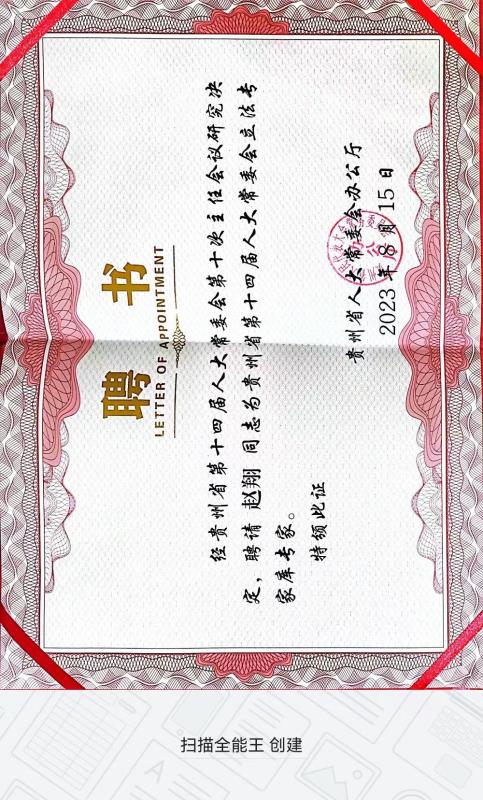 聘书
LETTER OF APPOINTMENT
经贵州省第十四届人大常委会第十次主任会议研究决
定，聘请 赵翔 同志为贵州省第十四届人大常委会立法专
家库专家。
特颁此证
贵州省人大常委会办公厅
2023年8月15日
扫描全能王 创建